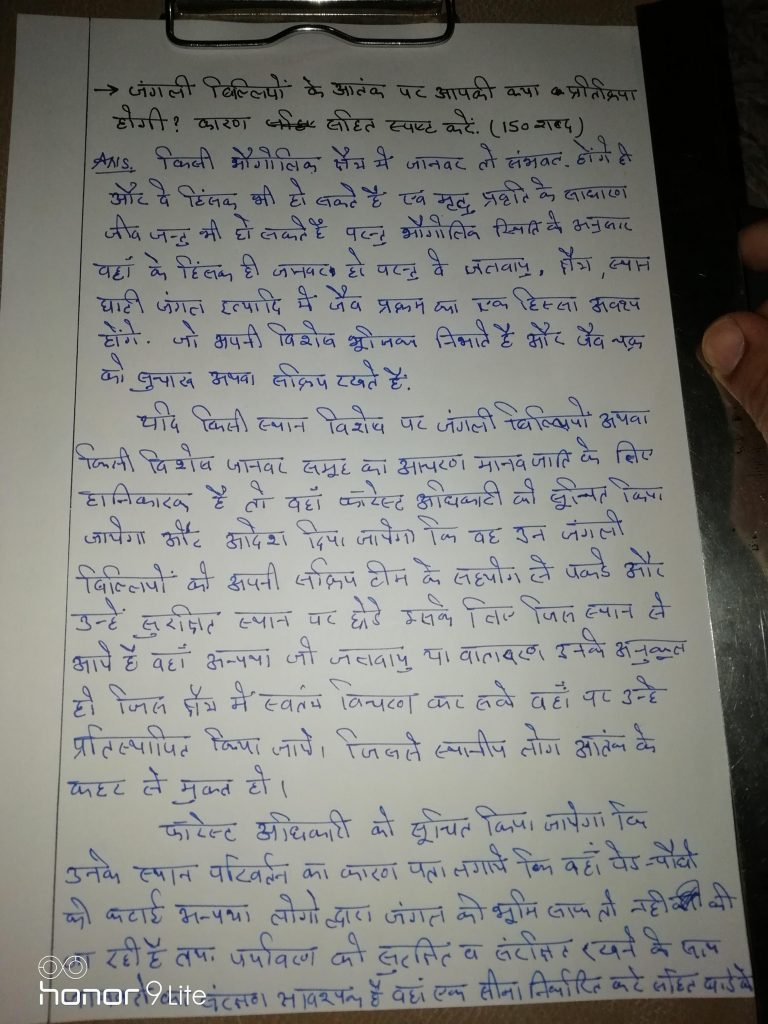 → जंगली बिल्लियों के आतंक पर आपकी क्या प्रतिक्रिया
होगी? कारण सहित स्पष्ट करें. (150 शब्द)
Ans. किसी भौगोलिक क्षेत्र में जानवर तो संभवत. होंगे ही
और वे हिंसक भी हो सकते है एवं मृदु प्रवृति के साधारण
जीव जन्तु भी हो सकते हैं परन्तु भौगोलिक स्थिति के अनुसार
वहाँ के हिंसक ही जानवर हो परन्तु वे जलवायु, क्षेत्र, स्थान
घाटी जंगल इत्यादि में जैव प्रक्रम का एक हिस्सा अवश्य
होंगे. जो अपनी विशेष भूमिका निभाते है और जैव चक्र
को सुचारू अथवा सक्रिय रखते हैं.
यदि किसी स्थान विशेष पर जंगली बिल्लियों अथवा
किसी विशेष जानवर समूह का आचरण मानव जाति के लिए
हानिकारक है तो वहाँ फॉरेस्ट अधिकारी को सूचित किया
जायेगा और आदेश दिया जायेगा कि वह उन जंगली
बिल्लियों को अपनी सक्रिय टीम के सहयोग से पकडे और
उन्हें सुरक्षित स्थान पर छोडे इसके लिए जिस स्थान से
आये है वहाँ अन्यथा जो जलवायु या वातावरण उनके अनुकूल
हो जिस क्षेत्र में स्वतंत्र विचरण कर सके वहाँ पर उन्हे
प्रतिस्थापित किया जाये। जिससे स्थानीय लोग आतंक के
कहर से मुक्त हो।
फॉरेस्ट अधिकारी को सूचित किया जायेगा कि
उनके स्थान परिवर्तन का कारण पता लगाये कि वहाँ पेड-पौधो
की कटाई अन्यथा लोगो द्वारा जंगल की भूमि साफ तो नही की
जा रही है तथा पर्यावरण को सुरक्षित व संरक्षित रखने के साथ
संरक्षण आवश्यक है वहां एक सीमा निर्धारित करे सहित बाडे के
honor 9 Lite